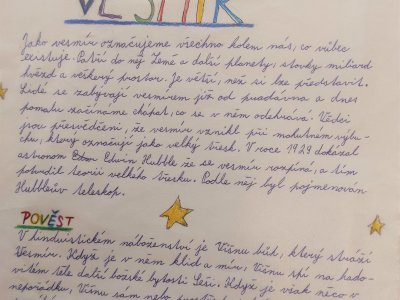 VESMÍR
Jako vesmír označujeme všechno kolem nás, co vůbec
existuje. Patří do něj Země a další planety, stovky miliard
hvězd a veškerý prostor. Je větší, než si lze představit.
Lidé se zabývají vesmírem již od pradávna a dnes
pomalu začínáme chápat, co se v něm odehrává. Vědci
jsou přesvědčeni, že vesmír vznikl při mohutném výbu-
chu, který označují jako velký třesk. V roce 1929 dokázal
astronom Edwin Hubble že se vesmír rozpíná, a tím
potvrdil teorii velkého třesku. Podle něj byl pojmenován
Hubbleův teleskop.
POVĚST
V hinduistickém náboženství je Višnu bůh, který stráží
Vesmír. Když je v něm klid a mír, Višnu spí na hado-
vitém těle další božské bytosti Šéši. Když je však něco v
nepořádku, Višnu sám nebo